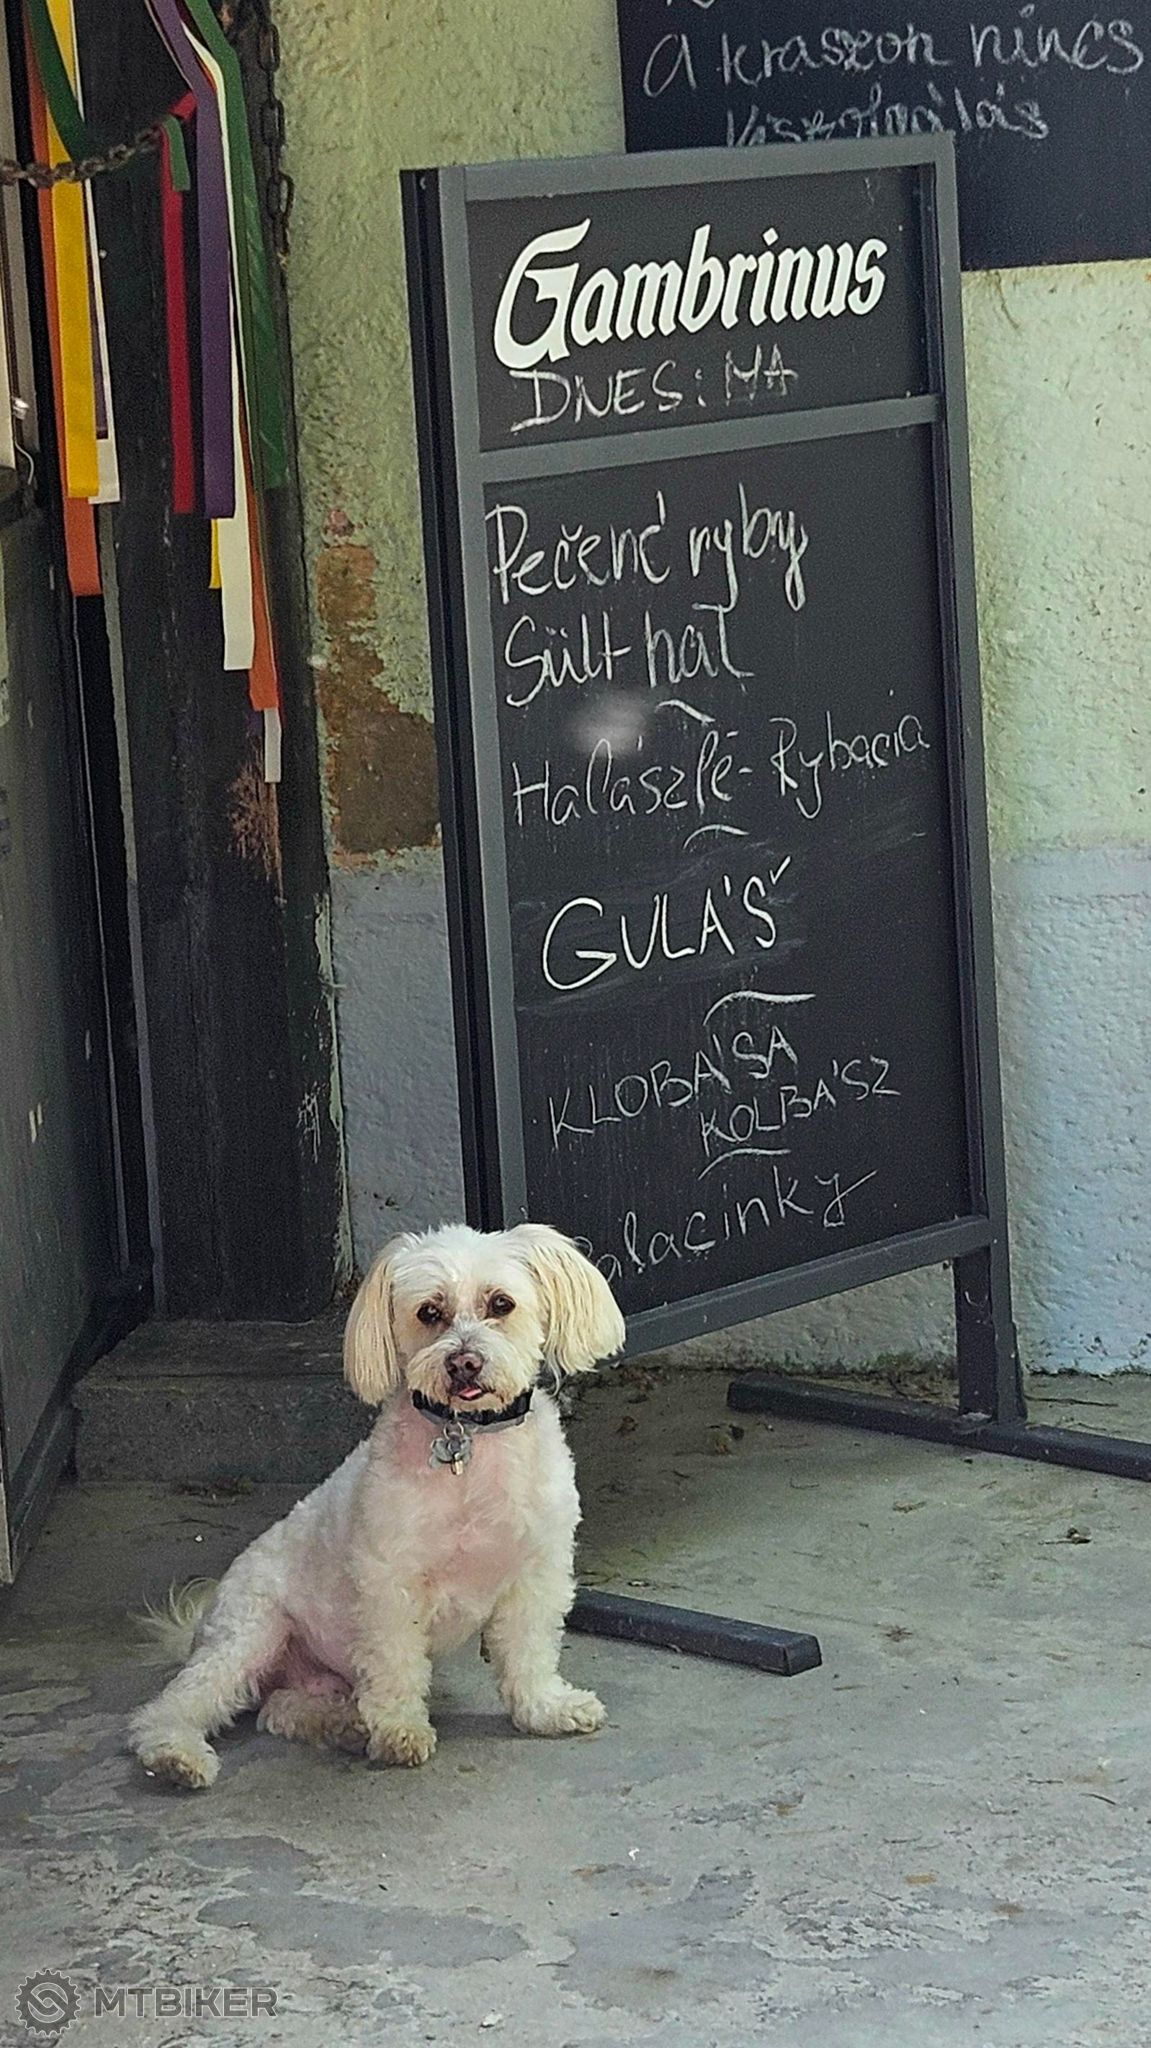 A teraszon nincs
kiszolgálás
Gambrinus
DNES: MA
Pečené ryby
Sült hal
Halászlé - Rybacia
GULÁŠ
KLOBÁSA
KOLBÁSZ
Palacinky
MTBIKER